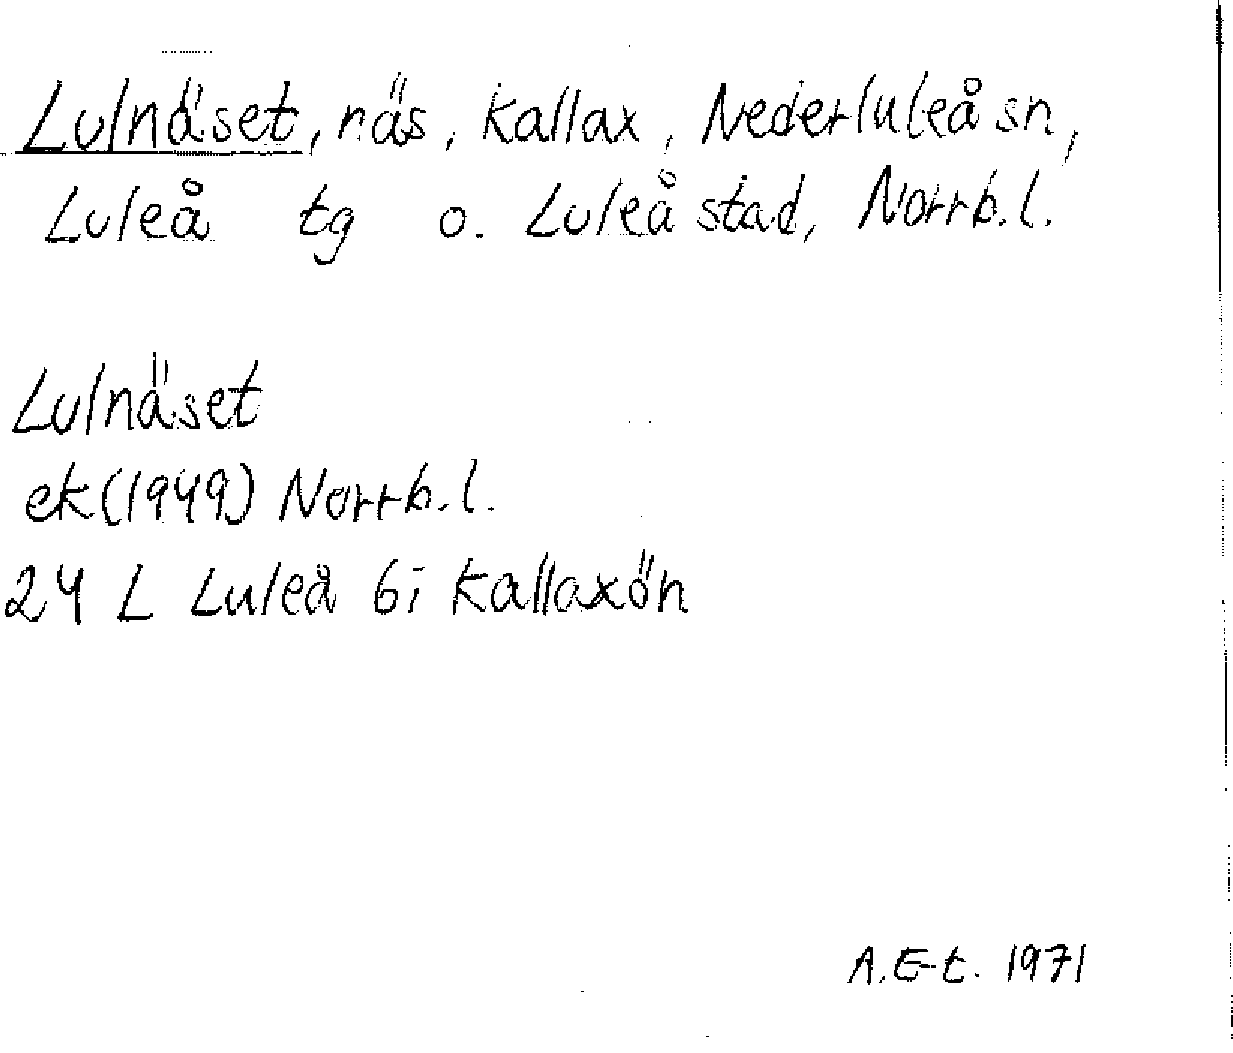 Lulnäset, näs, Kallax, Nederluleå sn,
Luleå tg o. Luleå stad, Norrb.l.
Lulnäset
ek(1949) Norrb.l.
24 L Luleå 6i Kallaxön
A.E-t. 1971